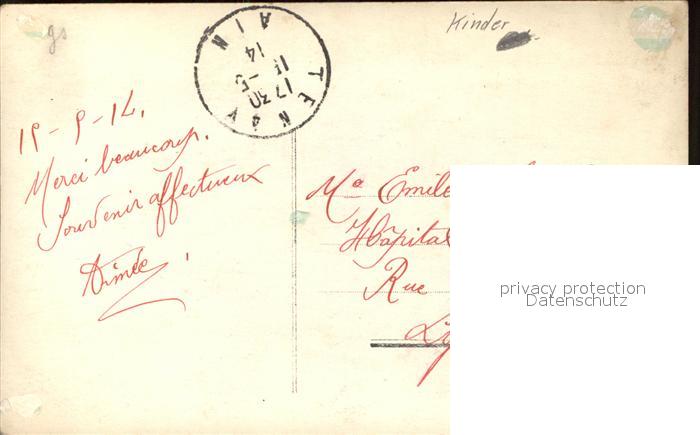 gs
Kinder
TENAY
AIN
17 30
15 -5
14
Merci beaucoup.
Souvenir affectueux
Aimée.
Me Emile
Hôpital
Rue
privacy protection
Datenschutz